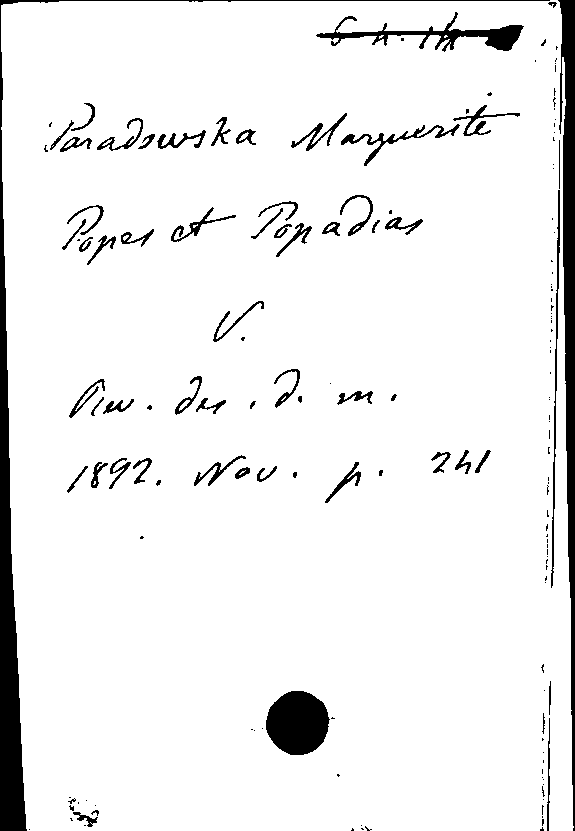 Paradowska Marguerite
Popes et Popadias
V.
Rev. des. d. m.
1892. Nov. p. 241